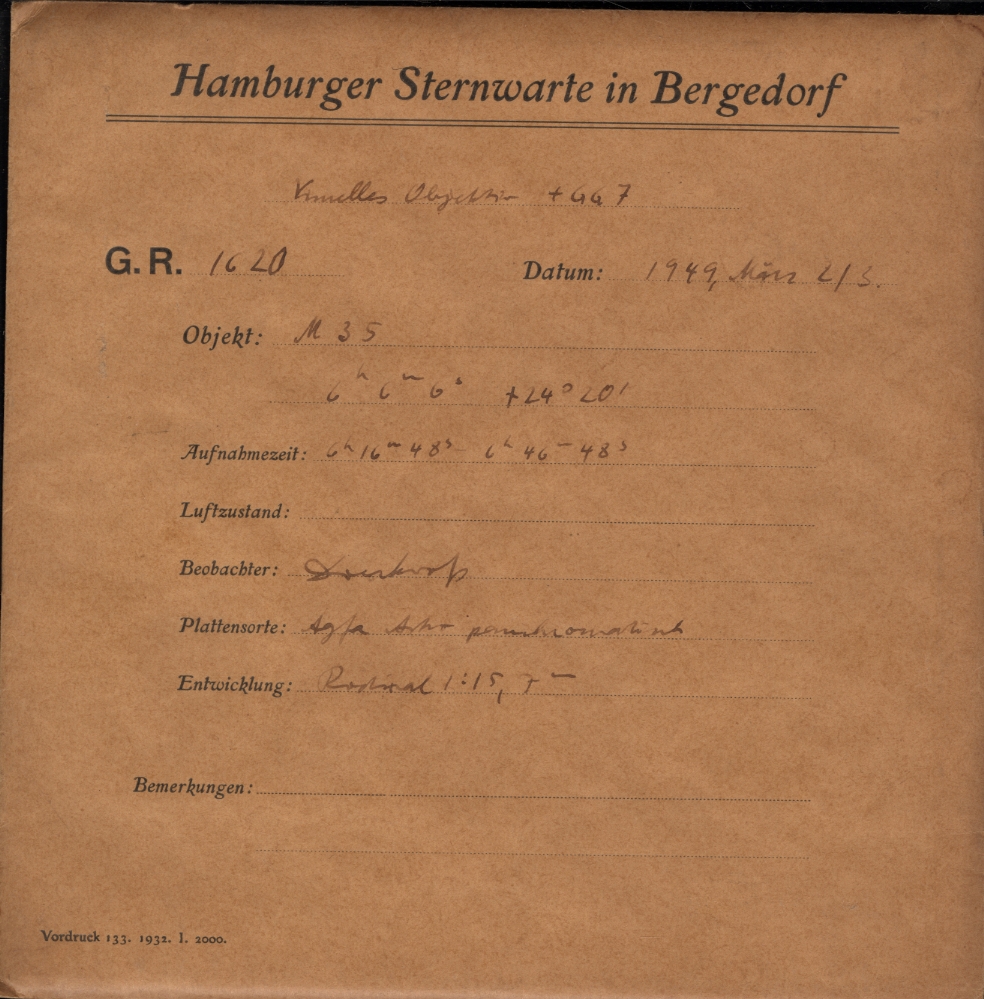 Hamburger Sternwarte in Bergedorf
Visuelles Objektiv + GG 7
G. R. 1620 Datum: 1949, März 2/3.
Objekt: M 35
6ʰ 6ᵐ 6ˢ +24° 20'
Aufnahmezeit: 6ʰ 16ᵐ 48ˢ – 6ʰ 46ᵐ 48ˢ
Luftzustand:
Beobachter:
Plattensorte: Agfa Astro panchromatisch
Entwicklung: Rodinal 1:15, 7ᵐ
Bemerkungen:
Vordruck 133. 1932. I. 2000.